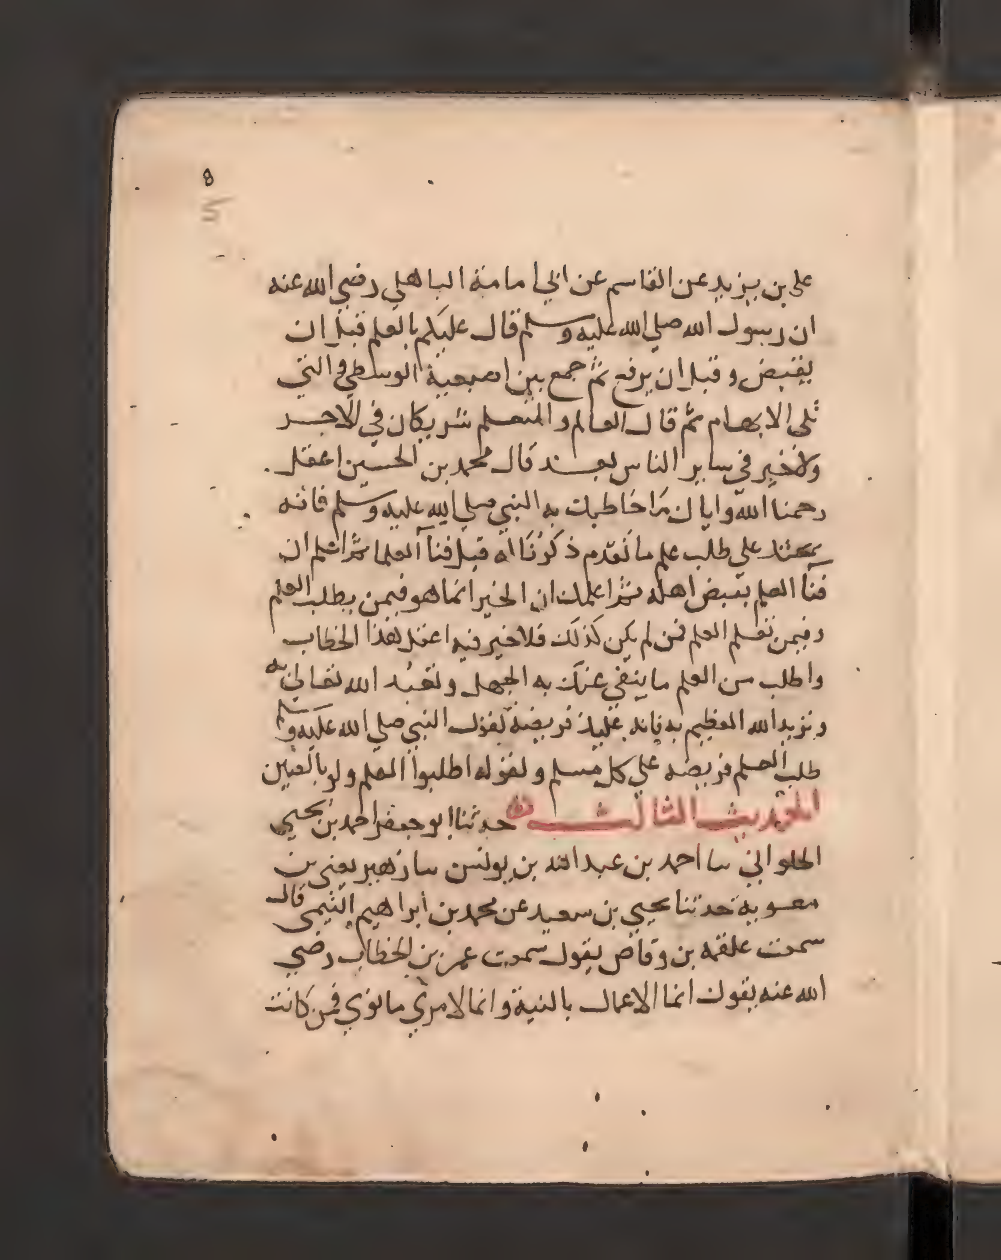 8
5
علي بن يزيد عن القاسم عن ابي امامة الباهلي رضي الله عنه
ان رسول الله صلي الله عليه وسلم قال عليكم بالعلم قبل ان
يقبض وقبل ان يرفع ثم جمع بين اصبعيه الوسطي والتي
تلي الابهام ثم قال العالم والمتعلم شريكان في الاجر
ولا خير في ساير الناس بعد قال محمد بن الحسين اعقل
رحمنا الله واياك ما خاطبك به النبي صلي الله عليه وسلم فانه
يحثك علي طلب علم ما تقدم ذكرنا له قبل فنآ العلما ثم اعلم ان
فنآ العلم بقبض اهله ثم اعلمك ان الخير انما هو فيمن يطلب العلم
وفيمن تعلم العلم فمن لم يكن كذلك فلا خير فيه اعقل هذا الخطاب
واطلب من العلم ما ينفي عنك به الجهل وتعبد الله تعالي به
وتريد الله العظيم به فانه عليك فريضة لقول النبي صلي الله عليه وسلم
طلب العلم فريضه علي كل مسلم ولقوله اطلبوا العلم ولو بالصين
الحديث الثالث حدثنا ابو جعفر احمد بن يحيي
الحلواني سا احمد بن عبد الله بن يونس سا زهير يعني بن
معوية حدثنا يحيي بن سعيد عن محمد بن ابراهيم التيمي قال
سمعت علقمه بن وقاص يقول سمعت عمر بن الخطاب رضي
الله عنه يقول انما الاعمال بالنية وانما لامرئ ما نوي فمن كانت